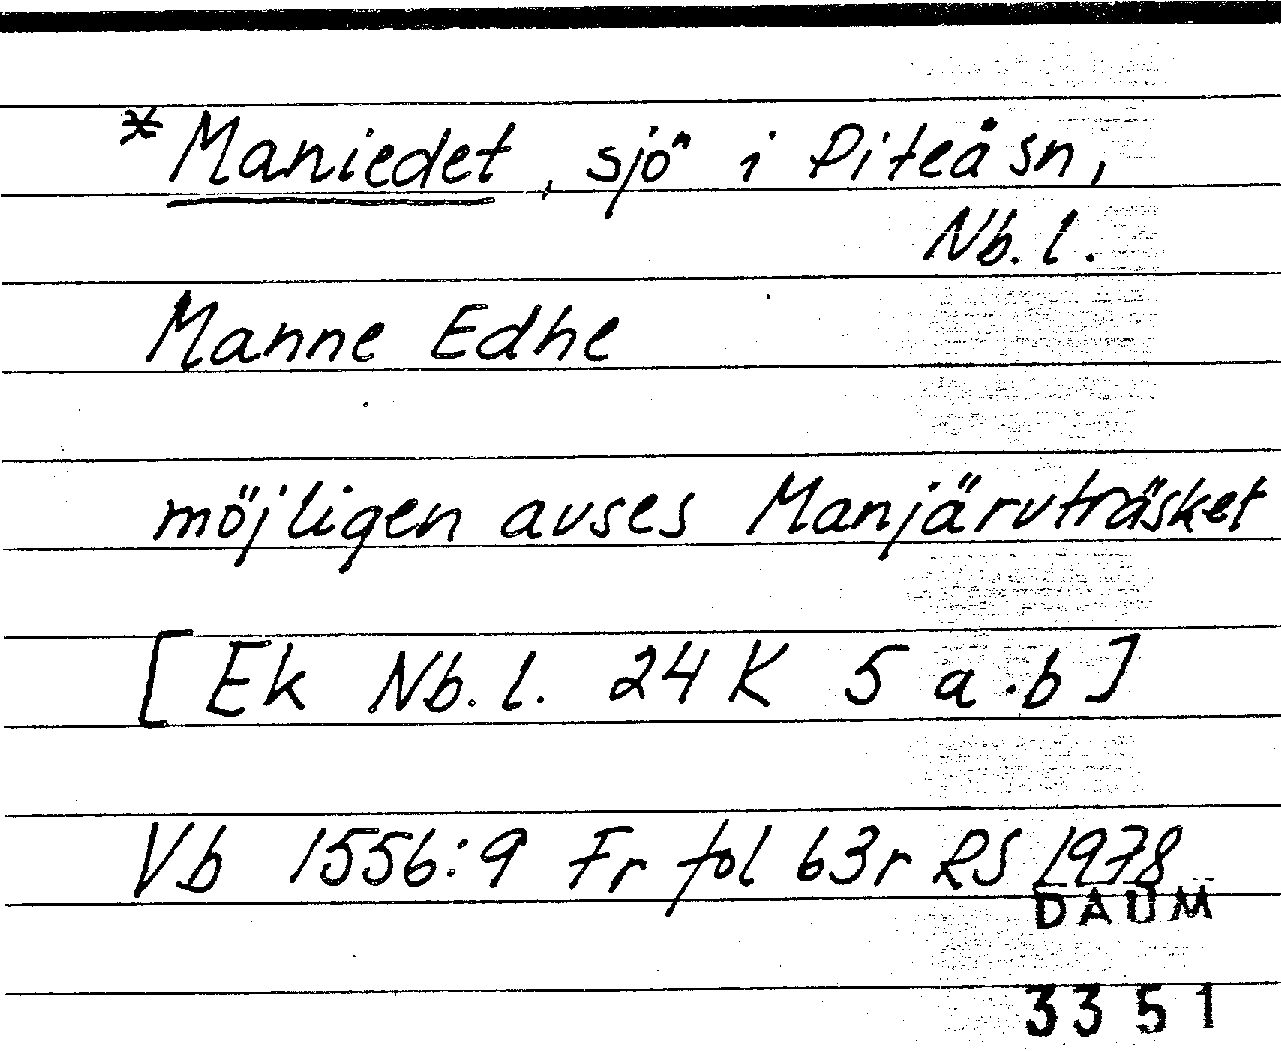 *Maniedet, sjö i Piteå sn,
Nb. l.
Manne Edhe
möjligen avses Manjärvträsket
[Ek Nb. l. 24 K 5 a.b]
Vb 1556:9 Fr fol 63r RS 1978
DAUM
3351